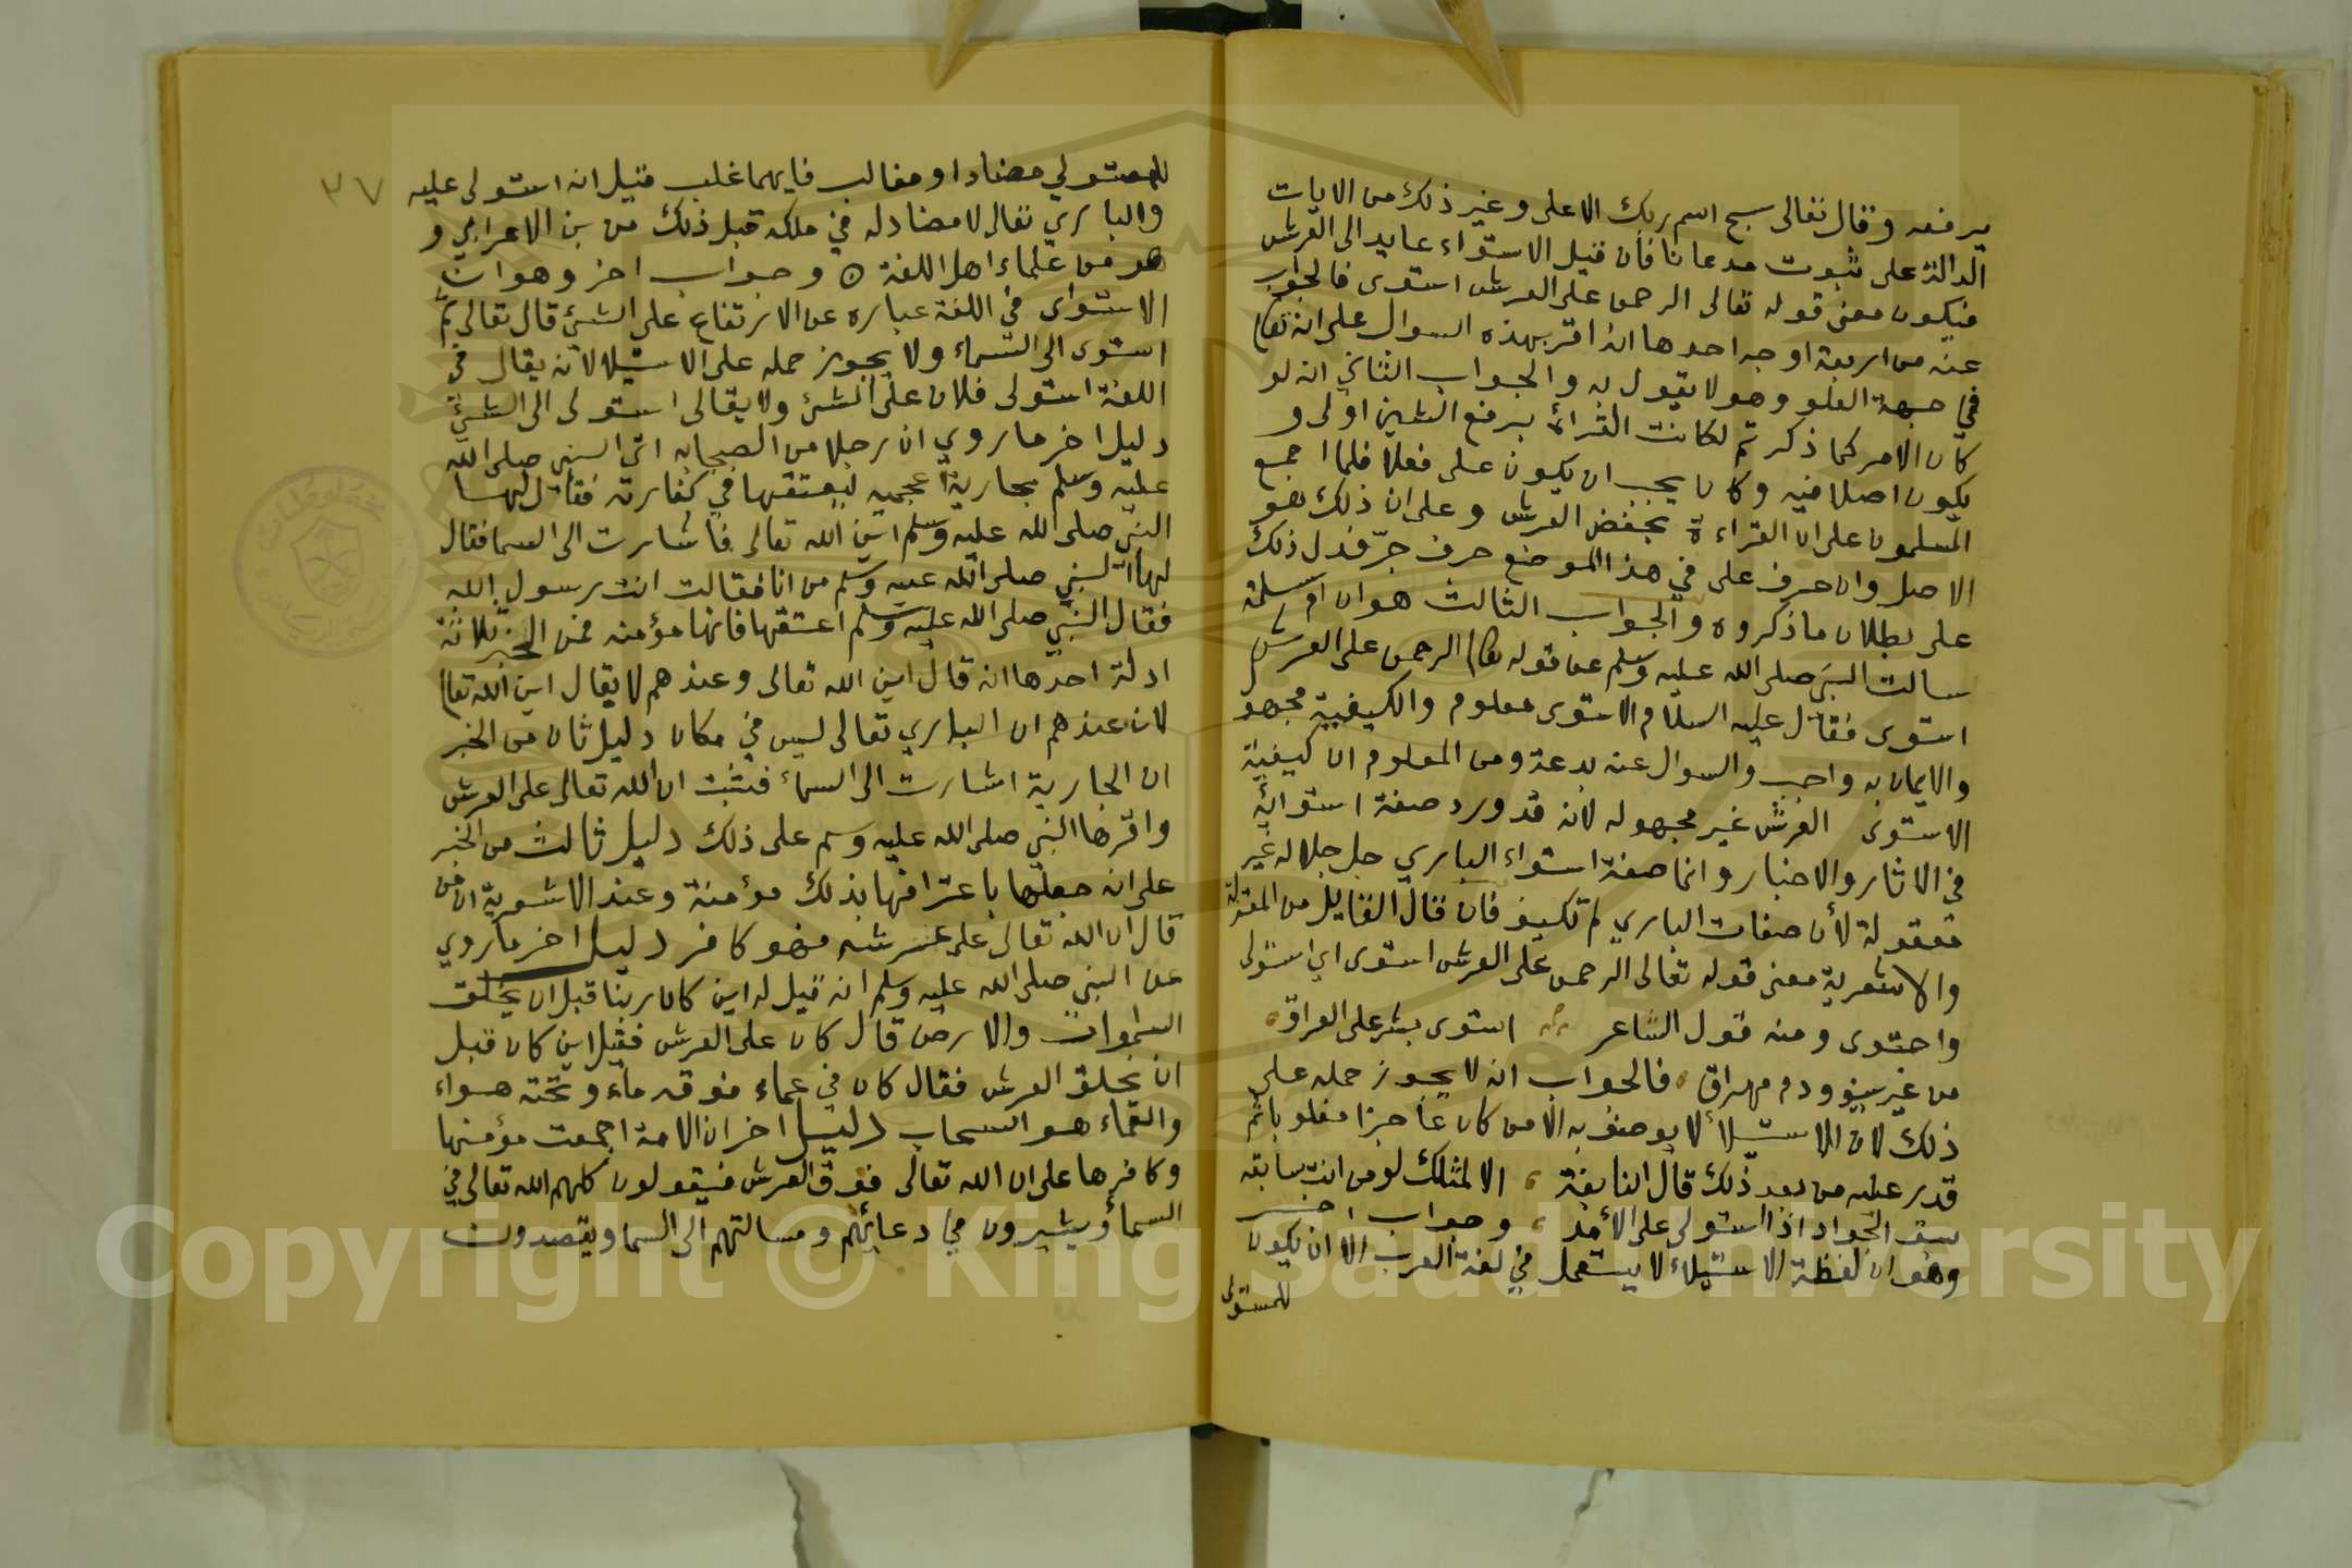 يرفعه وقال تعالى سبح اسم ربك الاعلى وغير ذلك من الايات
الدالة على ثبوت مدعانا فان قيل الاستواء عايد الى العرش
فيكون معنى قوله تعالى الرحمن على العرش استوى فالجواب
عنه من اربعة اوجه احدها انه اقر بهذه السوال على انه تعا
في جهة العلو وهو لا يقول به والجواب الثاني انه لو
كان الامر كما ذكرتم لكانت القراءة برفع الشين اولى و
يكون اصلا فيه وكان يجب ان يكون على فعلا فلما اجمع
المسلمون على ان القراءة بخفض العرش وعلى ان ذلك هو
الاصل وان حرف على في هذا الموضع حرف جر فدل ذلك
على بطلان ما ذكروه والجواب الثالث هو ان ام سلمة
سالت النبي صلى الله عليه وسلم عن قوله تعا الرحمن على العرش
استوى فقال عليه السلام الاستوى معلوم والكيفية مجهو
والايمان به واجب والسوال عنه بدعة ومن المعلوم ان كيفية
الاستوى العرش غير مجهوله لانه قد ورد صفة استوائه
في الاثار والاخبار وانما صفة استواء الباري جل جلاله غير
معقولة لأن صفات الباري لم تكيف فان قال القايل من المعتزلة
والاشعرية معنى قوله تعالى الرحمن على العرش استوى اي استولى
واحتوى ومنه قول الشاعر استوى بشر على العراق
من غير سيف ودم مهراق فالجواب انه لا يجوز حمله على
ذلك لان الاستيلاء لا يوصف به الا من كان عاجزا مغلوبا ثم
قدر عليه من بعد ذلك قال النابغة الا لمثلك او من انت سابقه
سبق الجواد اذا استولى على الأمد وجواب اخر
وهو ان لفظة الاستيلاء لا يستعمل في لغة العرب الا ان يكون
للمستولى
٣٧
للمستولي مضادا ومغالب فايهما غلب قيل انه استولى عليه
والباري تعالى لا مضاد له في ملكه قبل ذلك من بن الاعرابي و
هو من علماء اهل اللغة ه وجواب اخر وهو ان
الاستواى في اللغة عباره عن الارتفاع على الشئ قال تعالى ثم
استوى الى السماء ولا يجوز حمله على الاستيلا لانه يقال في
اللغة استولى فلان على الشئ ولا يقالى استولى الى الشئ
دليل اخر ما روي ان رجلا من الصحابه اتى النبي صلى الله
عليه وسلم بجارية اعجميه ليعتقها في كفارته فقال لها
النبي صلى الله عليه وسلم اين الله تعالى فاشارت الى السما فقال
لها النبي صلى الله عليه وسلم من انا فقالت انت رسول الله
فقال النبي صلى الله عليه وسلم اعتقها فانها مؤمنه فمن الخبر ثلاثة
ادلة احدها انه قال اين الله تعالى وعندهم لا يقال اين الله تعا
لان عندهم ان الباري تعالى ليس في مكان دليل ثان من الخبر
ان الجارية اشارت الى السماء فثبت ان الله تعالى على العرش
واقرها النبي صلى الله عليه وسلم على ذلك دليل ثالث من الخبر
على انه جعلها باعترافها بذلك مؤمنة وعند الاشعرية ان من
قال ان الله تعالى على عرشه فهو كافر دليل اخر ما روي
عن النبي صلى الله عليه وسلم انه قيل له اين كان ربنا قبل ان يخلق
السموات والارض قال كان على العرش فقيل اين كان قبل
ان يخلق العرش فقال كان في عماء فوقه ماء وتحته هواء
والعماء هو السحاب دليل اخر ان الامة اجمعت مؤمنها
وكافرها على ان الله تعالى فوق العرش فيقولون كلهم الله تعالى في
السماء ويشيرون في دعائهم ومسالتهم الى السما ويقصدون
Copyright © King Saud University